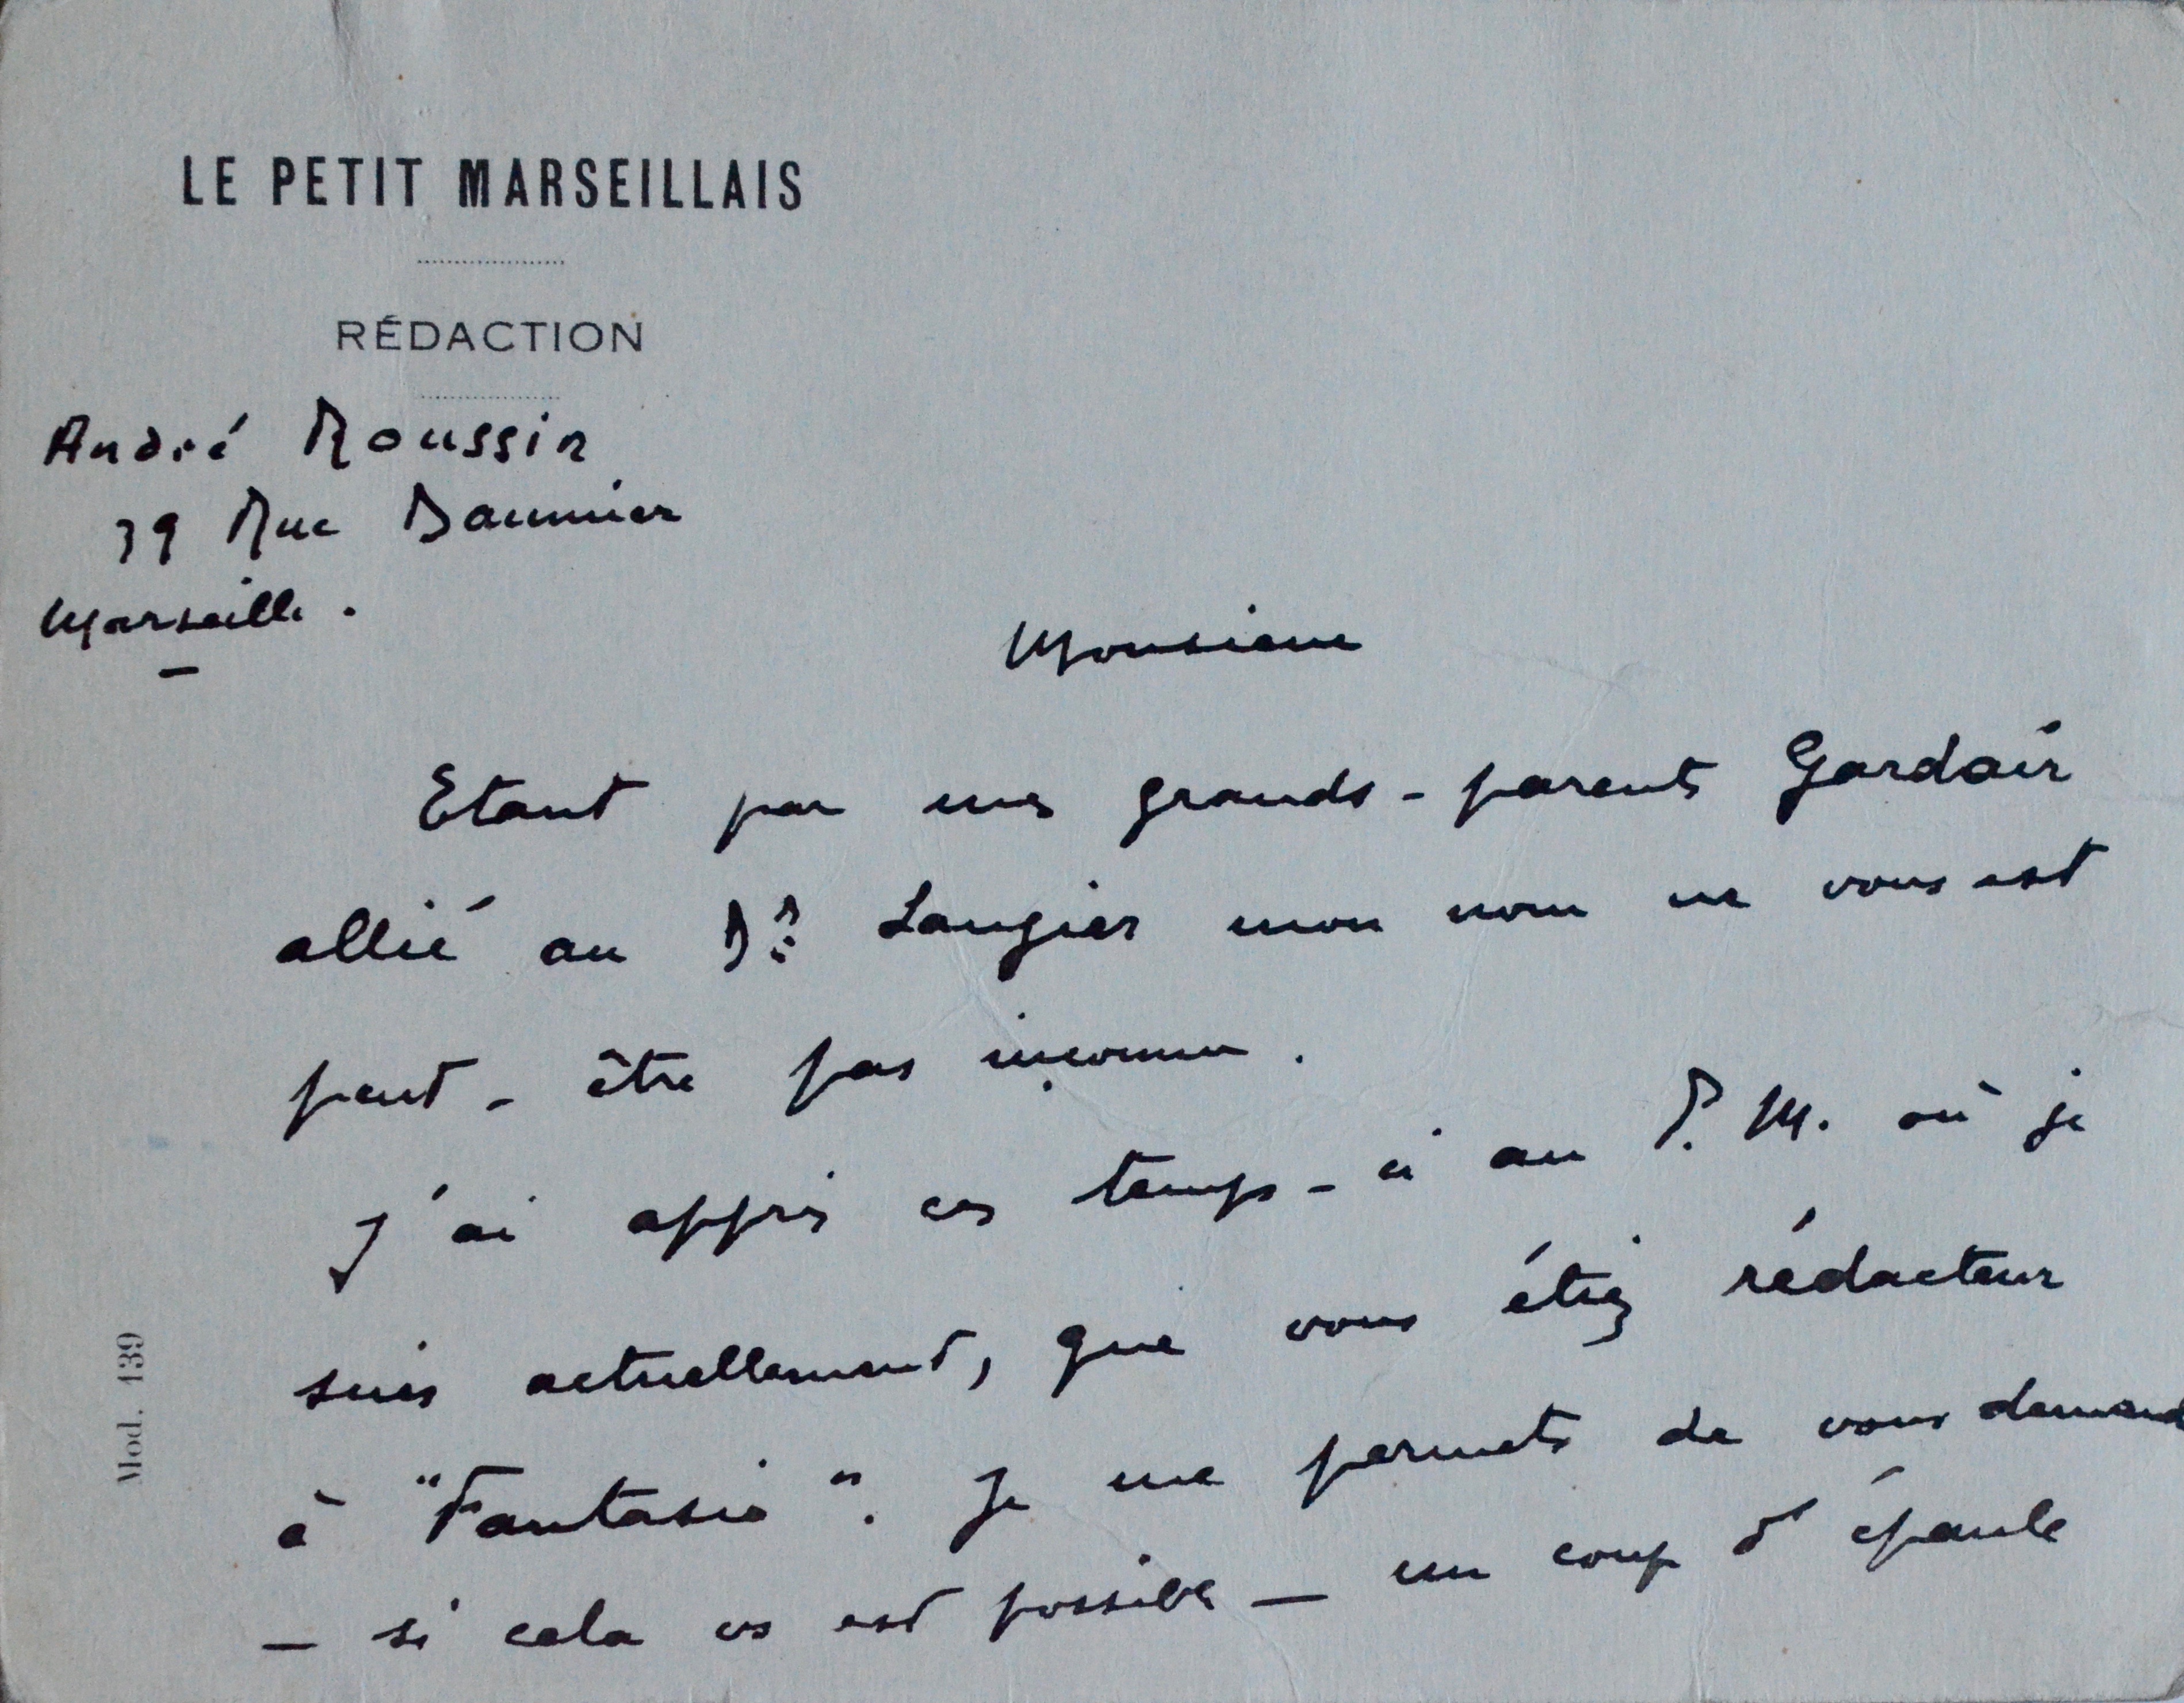 LE PETIT MARSEILLAIS
RÉDACTION
André Roussin
39 Rue Daumier
Marseille.
Monsieur
Etant par mes grands-parents Gardair
allié au Dr Laugier mon nom ne vous est
peut-être pas inconnu.
J'ai appris ces temps-ci au P. M. où je
suis actuellement, que vous étiez rédacteur
à "Fantasio". Je me permets de vous demand
— si cela vs est possible — un coup d'épaule
Mod. 139